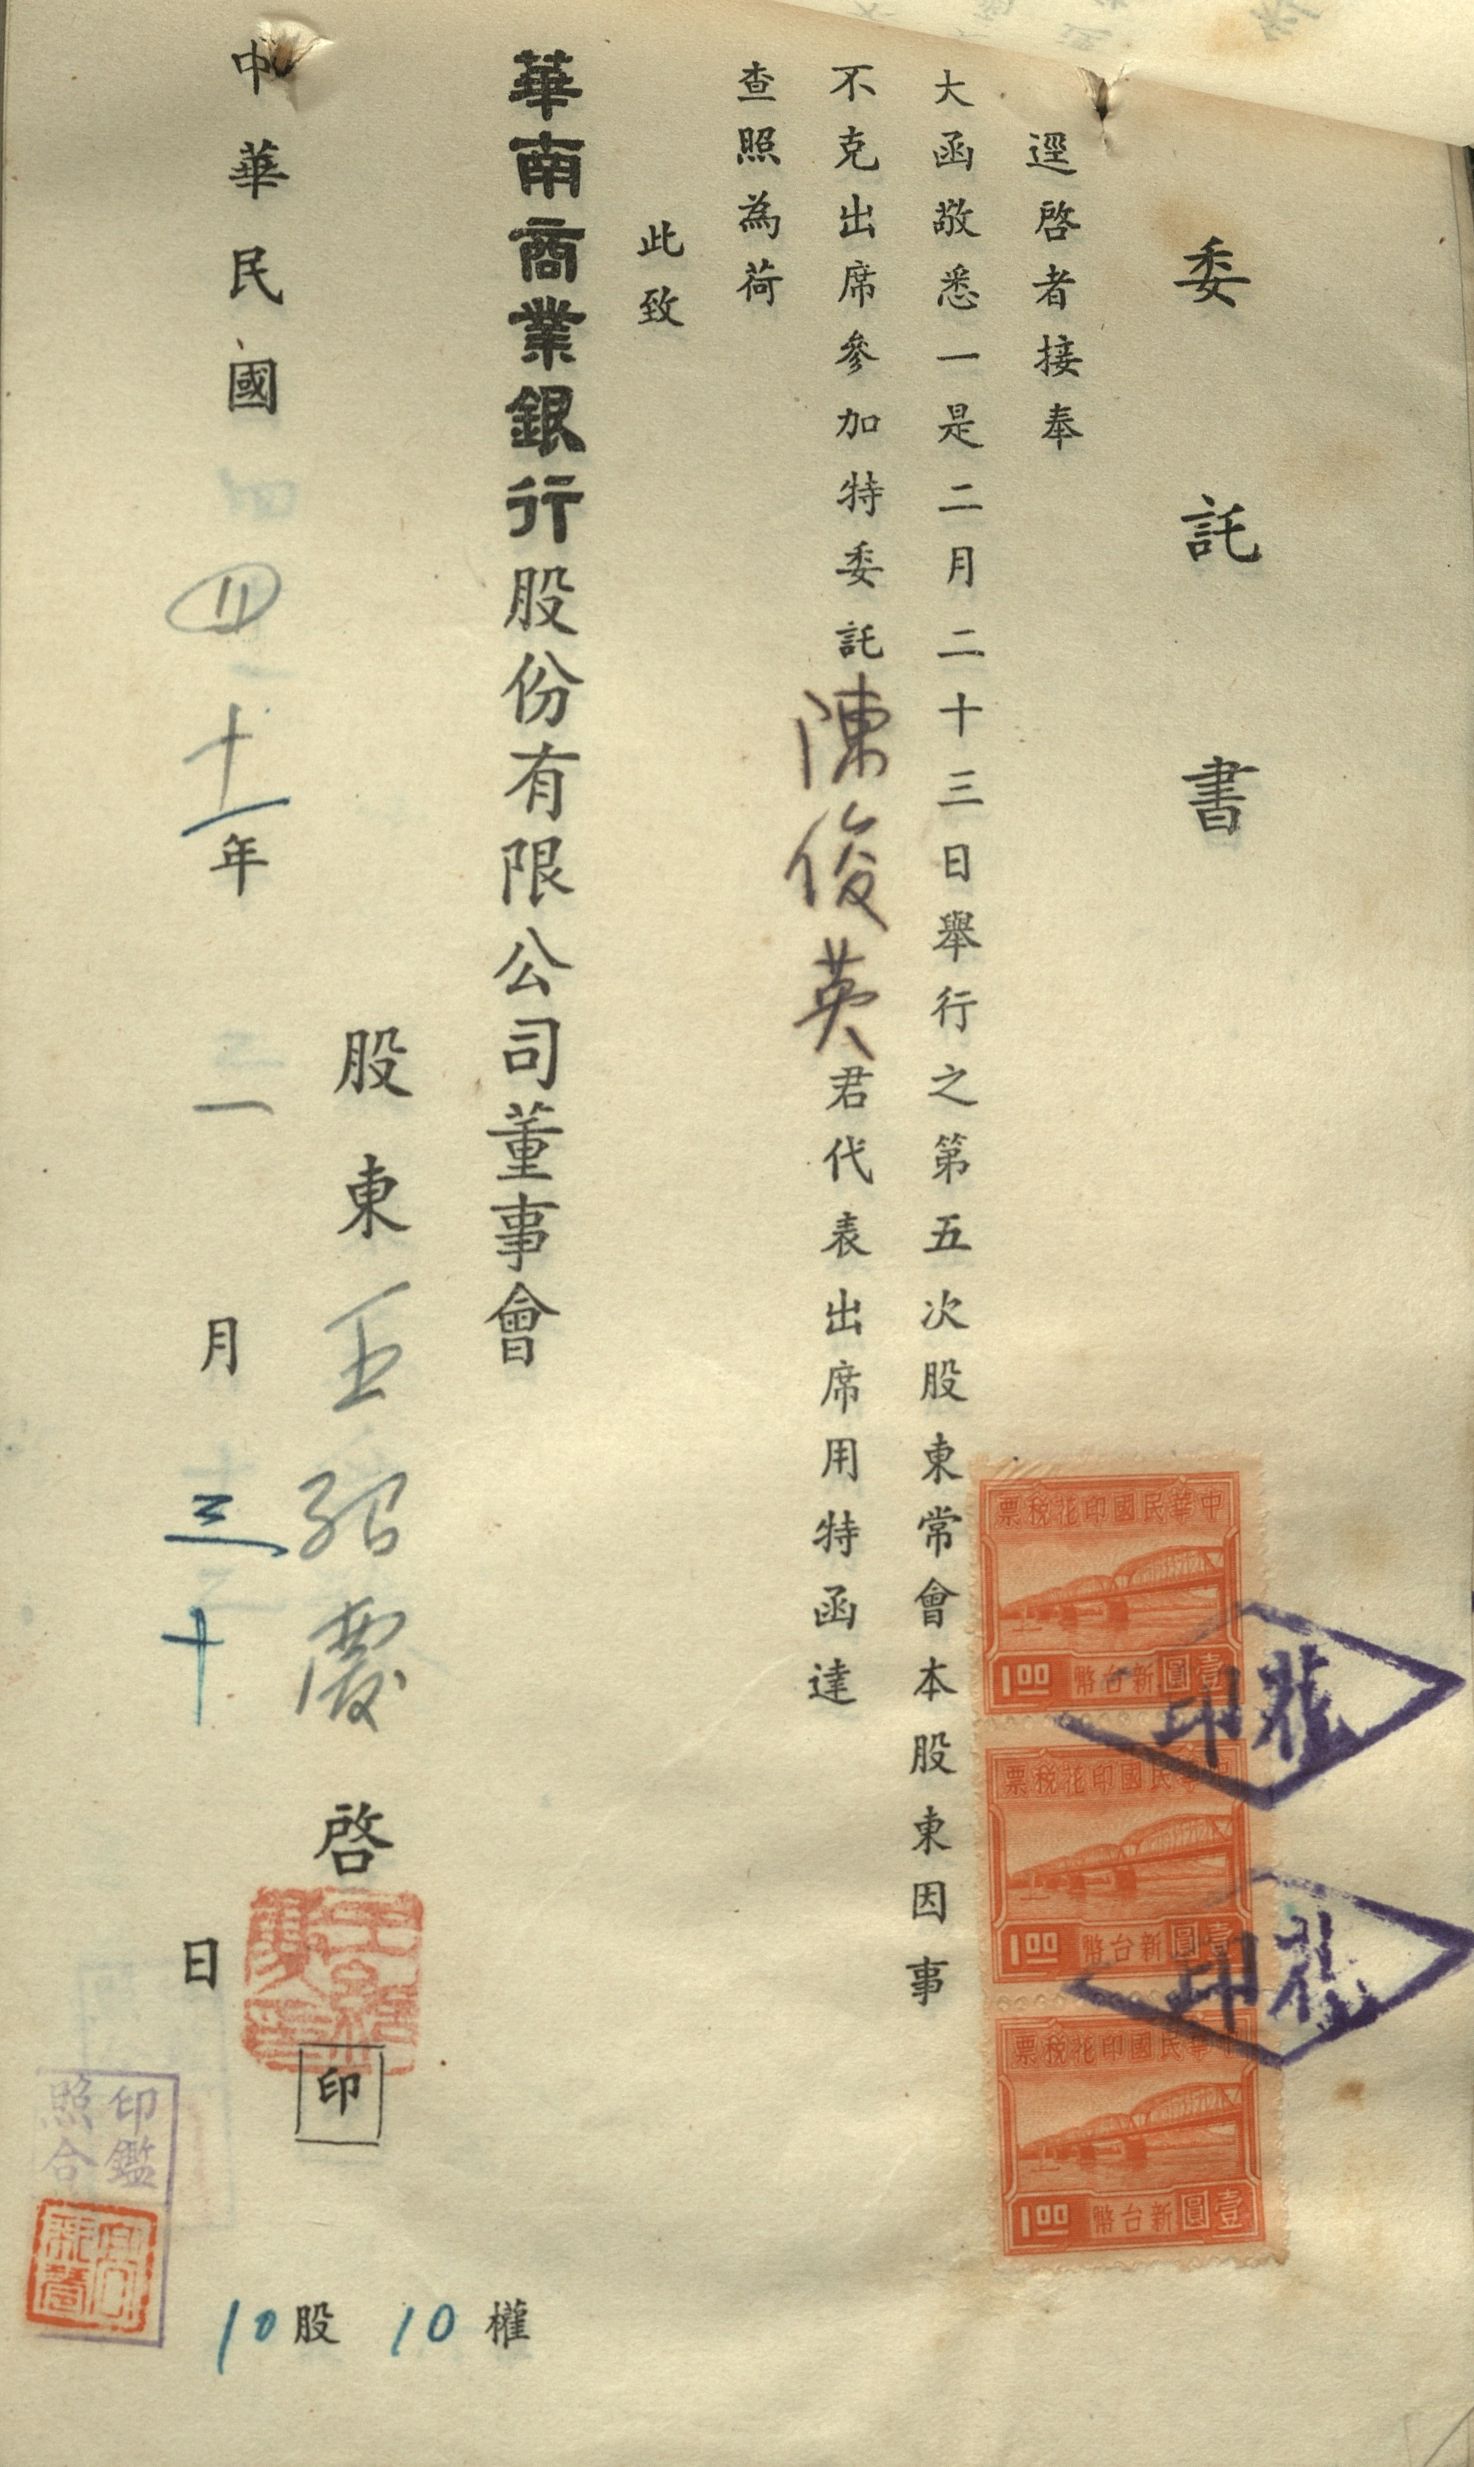 委託書
逕啓者接奉
大函敬悉一是二月二十三日舉行之第五次股東常會本股東因事
不克出席參加特委託陳俊英君代表出席用特函達
查照為荷
此致
華南商業銀行股份有限公司董事會
股東王紹慶啓
印
中華民國四十一年二月三十日
10股 10權
中華民國印花税票
1.00 新台幣壹圓
中華民國印花税票
1.00 新台幣壹圓
中華民國印花税票
1.00 新台幣壹圓
印花
印花
印鑑
照合